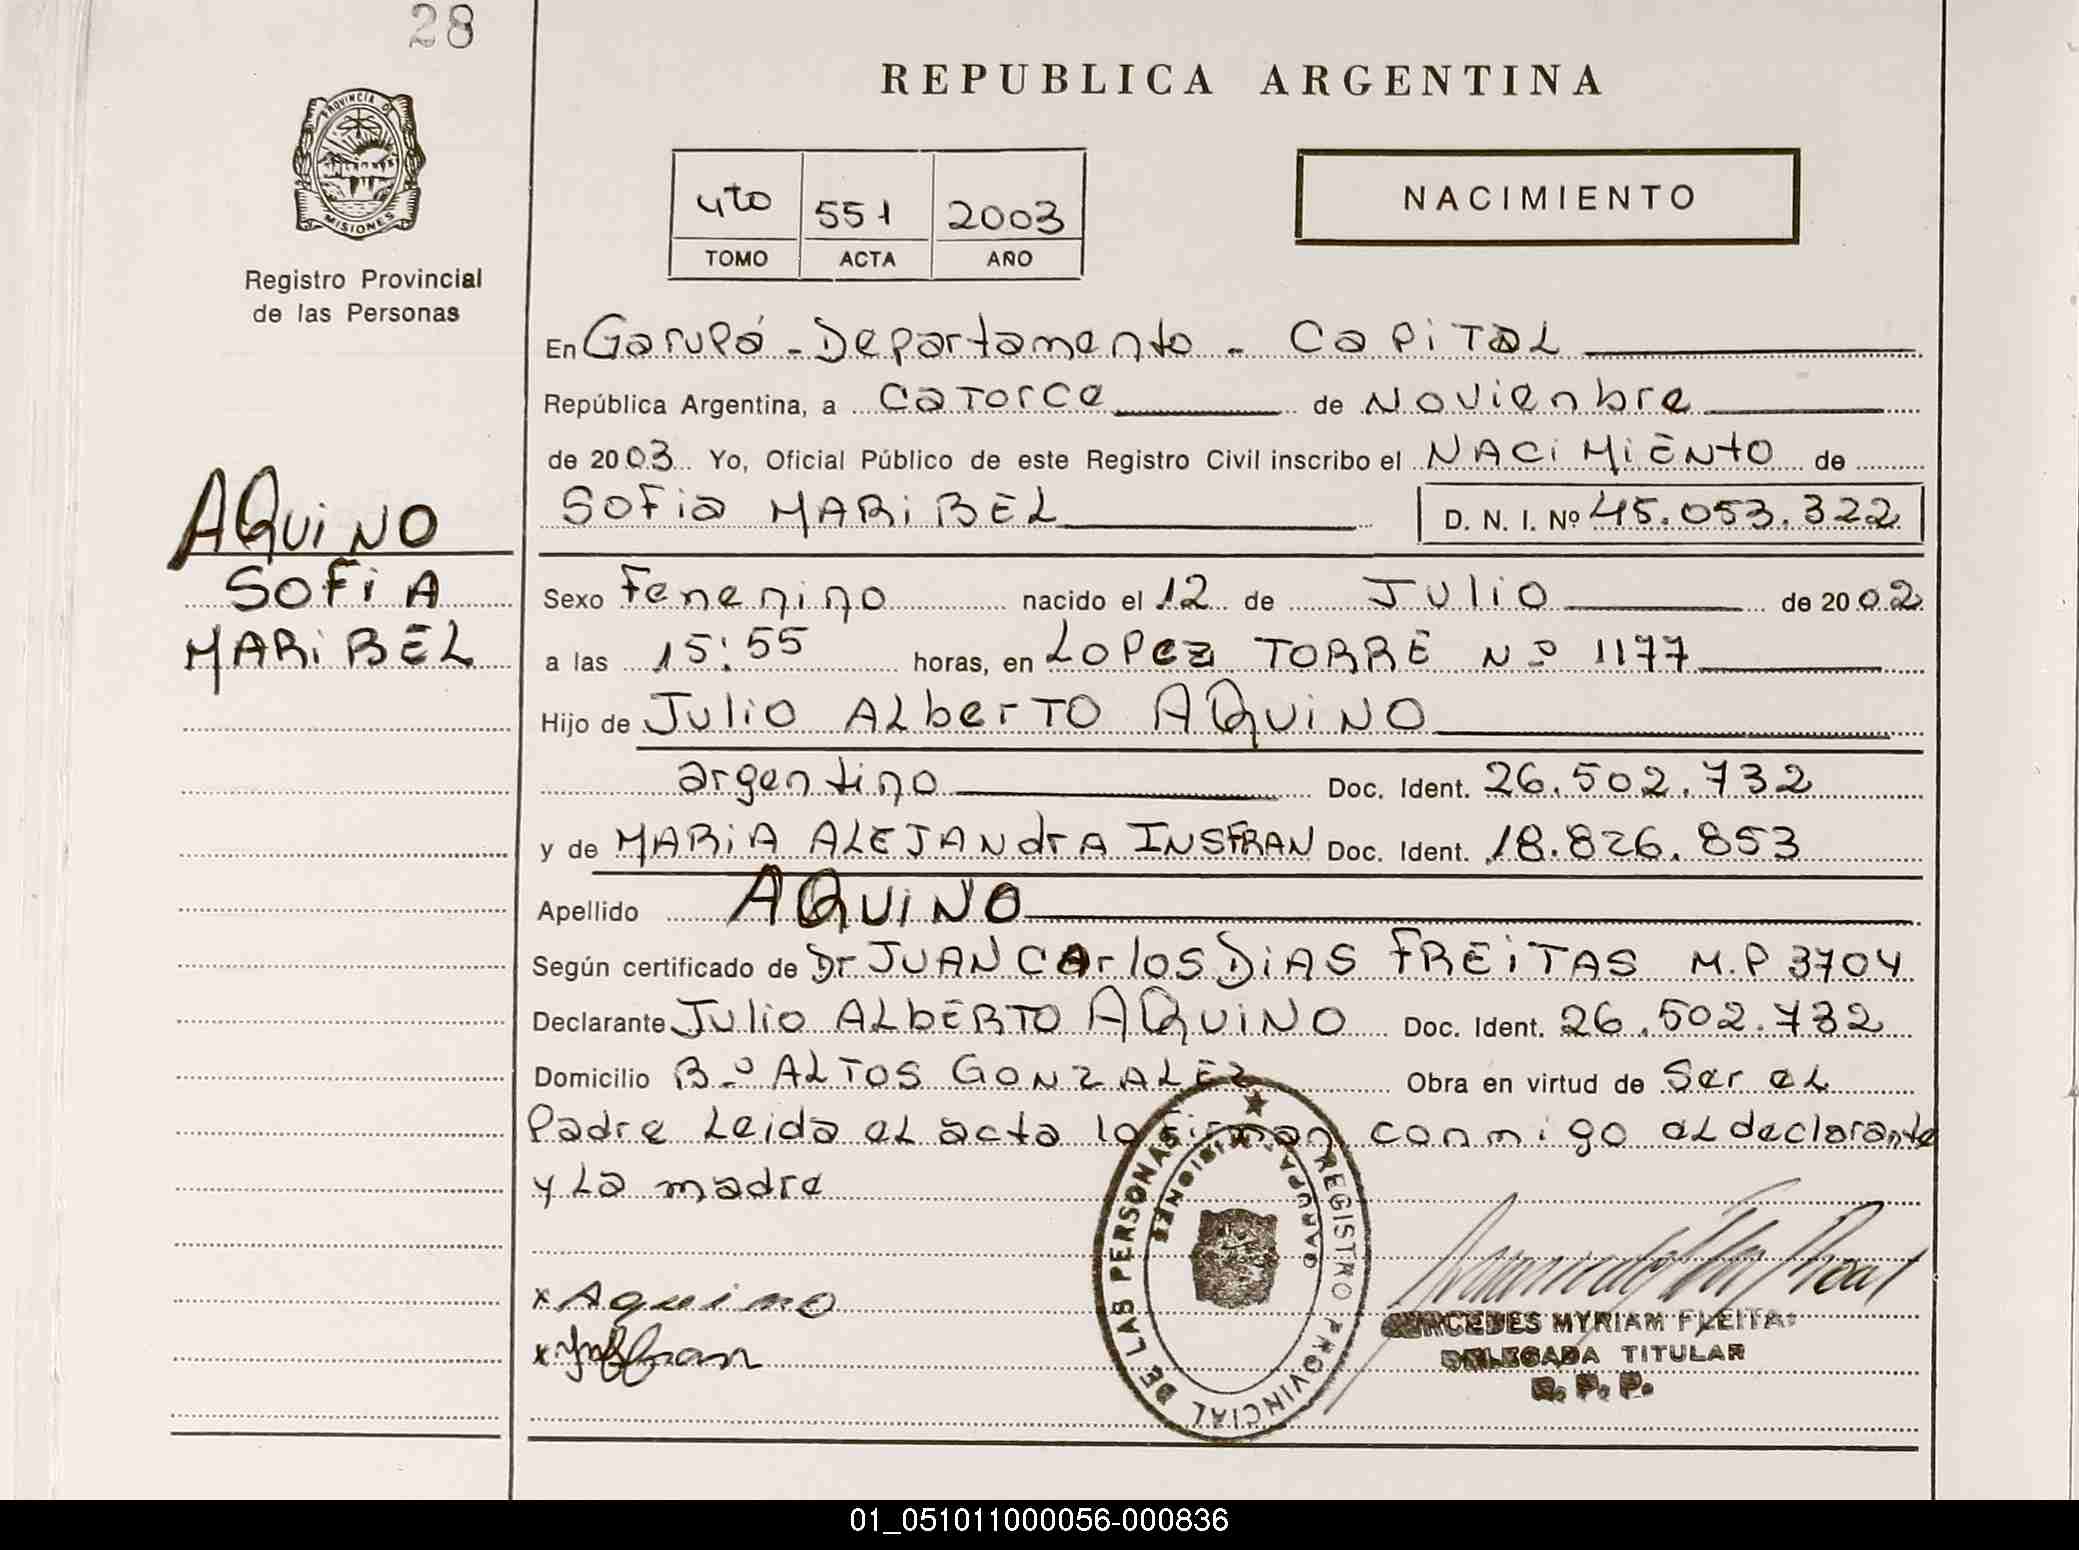 28
REPUBLICA ARGENTINA
PROVINCIA DE
MISIONES
Registro Provincial
de las Personas
4to 551 2003
TOMO ACTA AÑO
NACIMIENTO
En Garupá - Departamento - CaPiTaL
República Argentina, a CaTorce de Novienbre
de 2003 Yo, Oficial Público de este Registro Civil inscribo el NACiMiENto de
SoFia MARiBEL D. N. I. Nº 45.053.322
AQuiNO
SOFiA
MARiBEL
Sexo Femenino nacido el 12 de Julio de 2002
a las 15:55 horas, en LOPez TORRE Nº 1177
Hijo de Julio ALberTO AQuiNO
argentino Doc. Ident. 26.502.732
y de MARiA ALEJANdrA INSFRAN Doc. Ident. 18.826.853
Apellido AQuiNO
Según certificado de Dr JUAN CArlos DiAS FREiTAS M.P 3704
Declarante Julio ALbERTO AQuiNO Doc. Ident. 26.502.732
Domicilio Bº ALTOS GONZALEZ Obra en virtud de Ser eL
Padre Leida eL acta lo firman conmigo eL declarante
y La madre
x Aquino
x Insfran
REGISTRO PROVINCIAL DE LAS PERSONAS
GARUPA - MISIONES
MERCEDES MYRIAM FLEITAS
DELEGADA TITULAR
R. P. P.
01_051011000056-000836